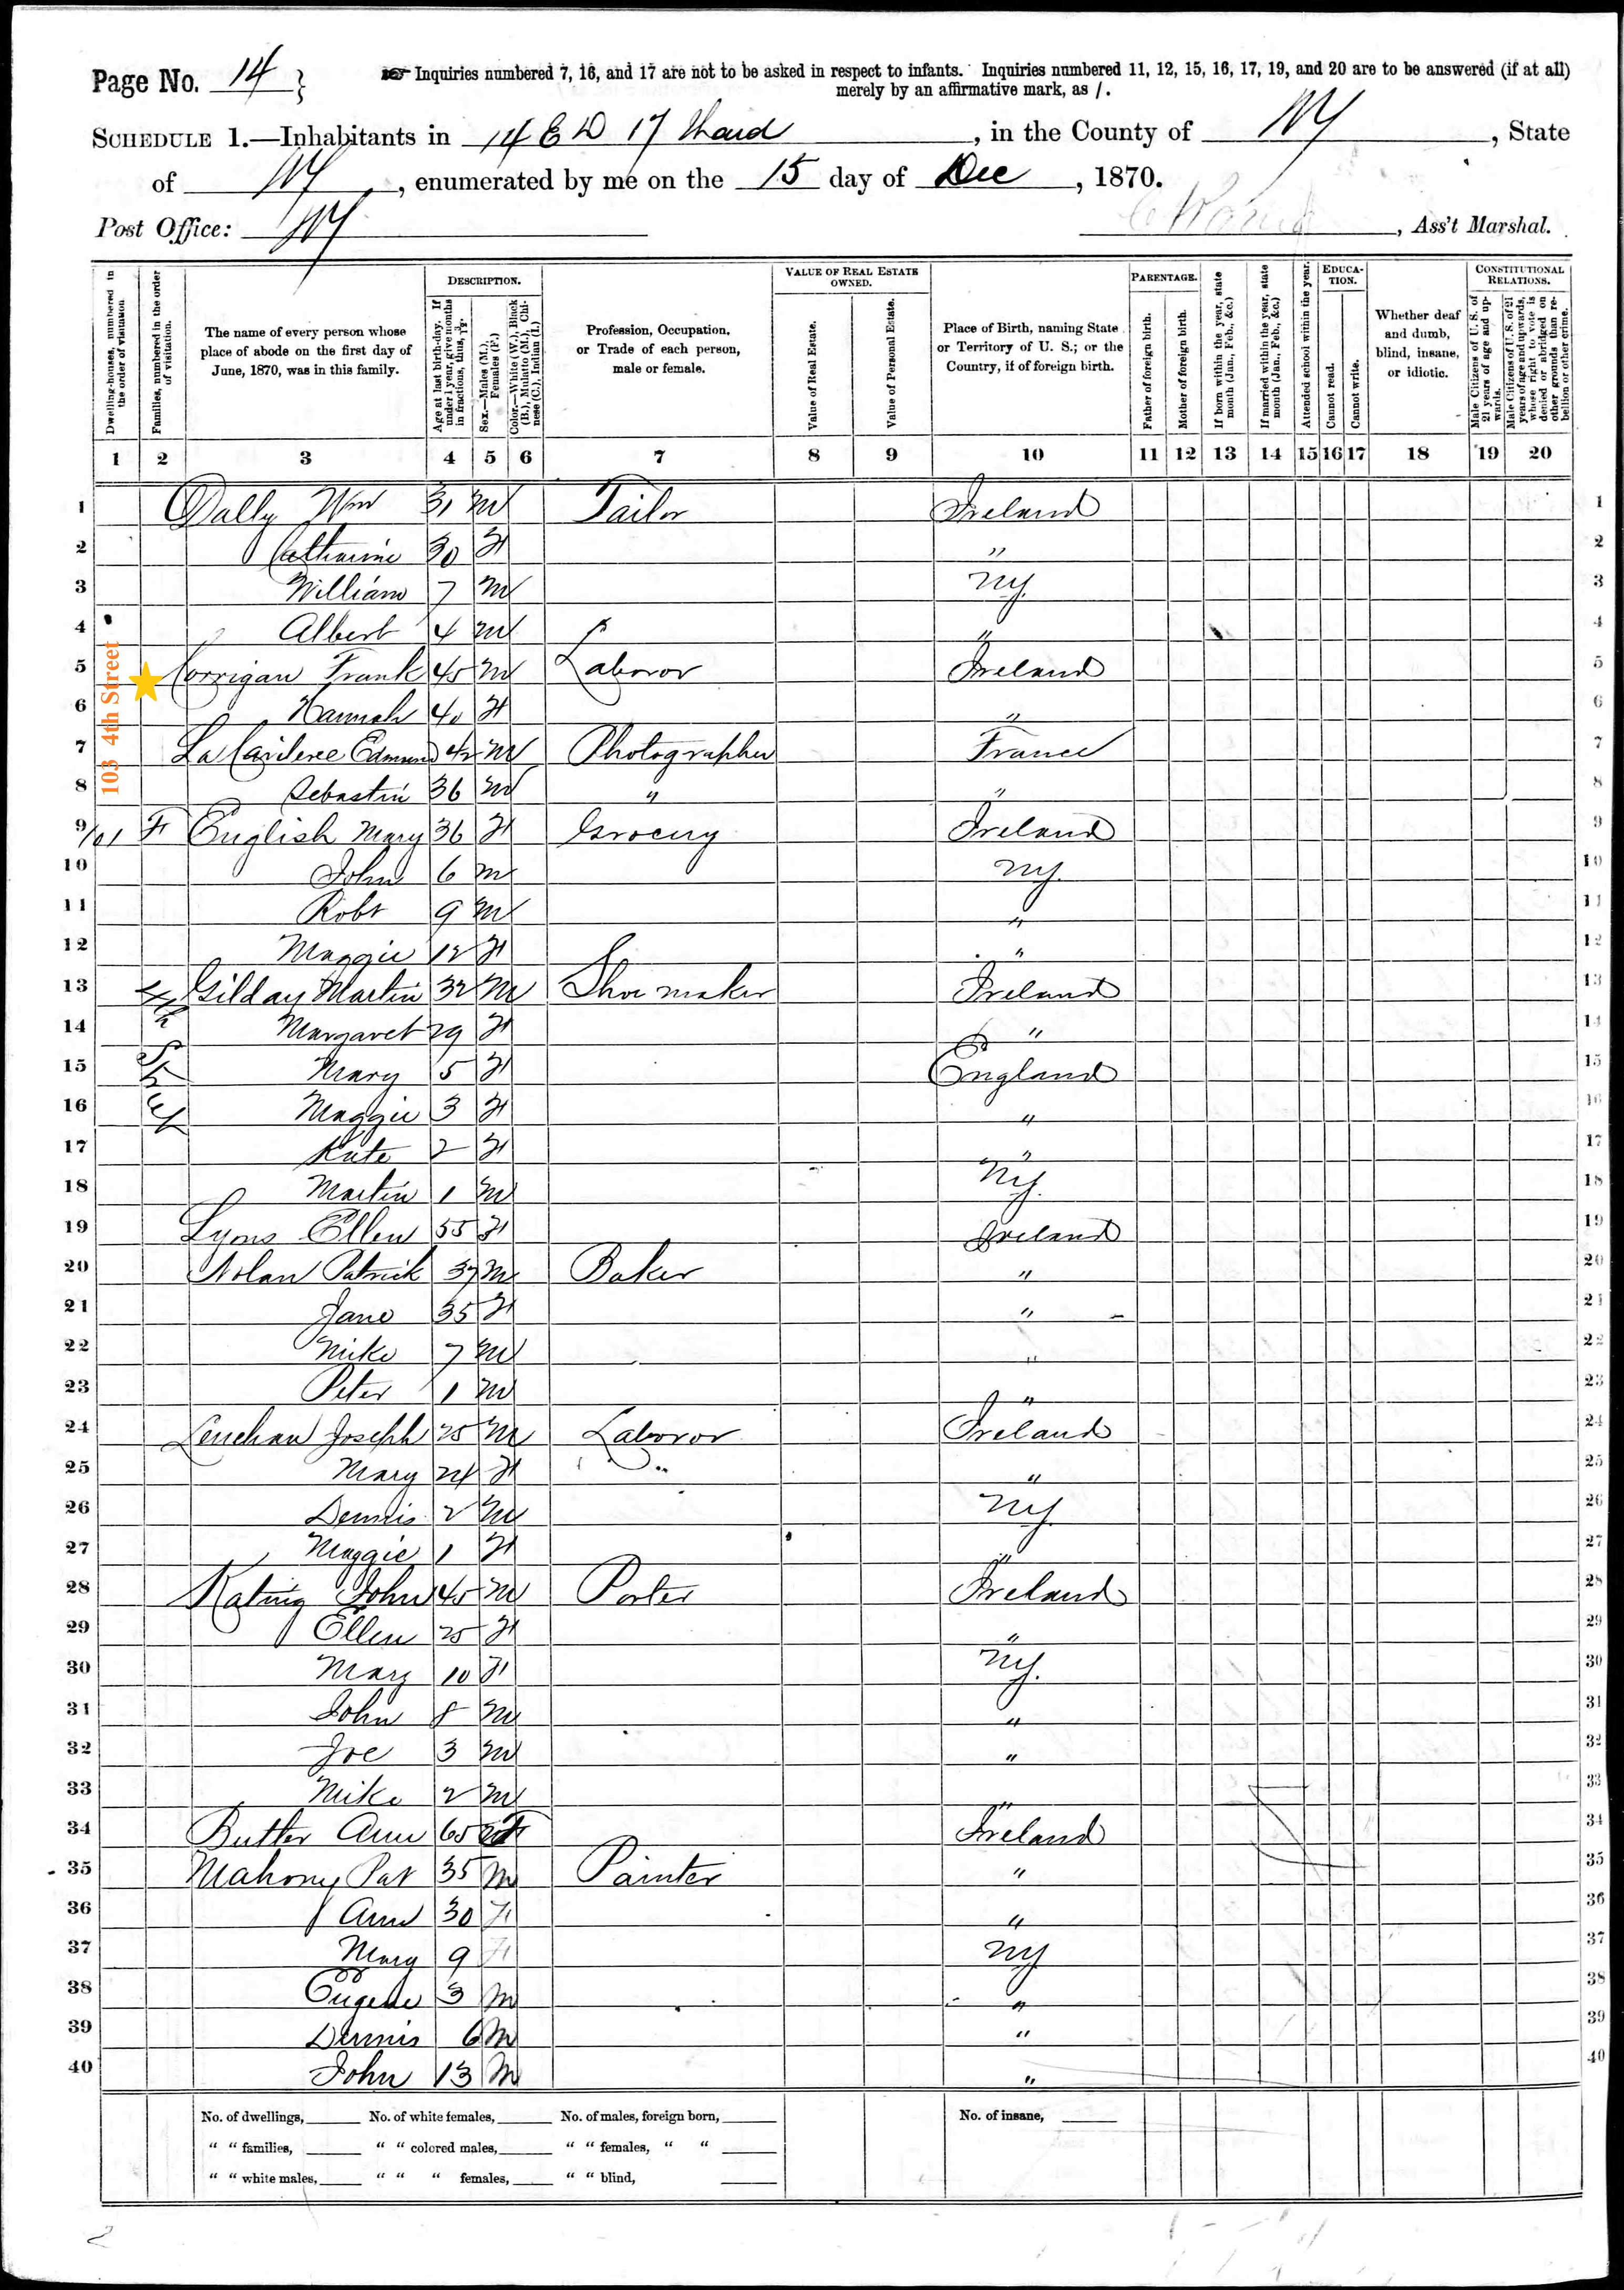 Page No. 14 } Inquiries numbered 7, 16, and 17 are not to be asked in respect to infants. Inquiries numbered 11, 12, 15, 16, 17, 19, and 20 are to be answered (if at all)
merely by an affirmative mark, as /.
SCHEDULE 1.—Inhabitants in 14 E D 17 Ward, in the County of NY, State
of NY, enumerated by me on the 15 day of Dec, 1870.
Post Office: NY , Ass't Marshal.
Dwelling-houses, numbered in the order of visitation.
Families, numbered in the order of visitation.
The name of every person whose place of abode on the first day of June, 1870, was in this family.
DESCRIPTION.
Age at last birth-day. If under 1 year, give months in fractions, thus, 3/12.
Sex.—Males (M.), Females (F.)
Color.—White (W.), Black (B.), Mulatto (M.), Chinese (C.), Indian (I.)
Profession, Occupation, or Trade of each person, male or female.
VALUE OF REAL ESTATE OWNED.
Value of Real Estate.
Value of Personal Estate.
Place of Birth, naming State or Territory of U. S.; or the Country, if of foreign birth.
PARENTAGE.
Father of foreign birth.
Mother of foreign birth.
If born within the year, state month (Jan., Feb., &c.)
If married within the year, state month (Jan., Feb., &c.)
Attended school within the year.
EDUCATION.
Cannot read.
Cannot write.
Whether deaf and dumb, blind, insane, or idiotic.
CONSTITUTIONAL RELATIONS.
Male Citizens of U. S. of 21 years of age and upwards.
Male Citizens of U. S. of 21 years of age and upwards, whose right to vote is denied or abridged on other grounds than rebellion or other crime.
1 2 3 4 5 6 7 8 9 10 11 12 13 14 15 16 17 18 19 20
1 Dally Wm 31 M Tailor Ireland 1
2 Catharine 30 F " 2
3 William 7 M NY. 3
4 Albert 4 M " 4
103 4th Street
5 Corrigan Frank 45 M Laboror Ireland 5
6 Hannah 40 F " 6
7 Edmund 42 M Photographer France 7
8 Sebastin 36 M " " 8
9 101 F English Mary 36 F Grocery Ireland 9
10 John 6 M NY. 10
11 Robt 9 M " 11
12 Maggie 12 F " 12
4th Street
13 Gilday Martin 32 M Shoe maker Ireland 13
14 Margaret 29 F " 14
15 Mary 5 F England 15
16 Maggie 3 F " 16
17 Kate 2 F " 17
18 Martin 1 M NY. 18
19 Lyons Ellen 55 F Ireland 19
20 Nolan Patrick 37 M Baker " 20
21 Jane 35 F " 21
22 Mike 7 M " 22
23 Peter 1 M " 23
24 Lenehan Joseph 25 M Laboror Ireland 24
25 Mary 24 F " 25
26 Dennis 2 M NY 26
27 Maggie 1 F " 27
28 Kating John 45 M Porter Ireland 28
29 Ellen 25 F " 29
30 Mary 10 F NY. 30
31 John 8 M " 31
32 Joe 3 M " 32
33 Mike 2 M " 33
34 Butler Ann 65 F Ireland 34
35 Mahony Pat 35 M Painter " 35
36 Ann 30 F " 36
37 Mary 9 F NY 37
38 Eugene 3 M " 38
39 Dennis 6 M " 39
40 John 13 M " 40
No. of dwellings, No. of white females, No. of males, foreign born, No. of insane,
" " families, " " colored males, " " females, " "
" " white males, " " " females, " " blind,
2